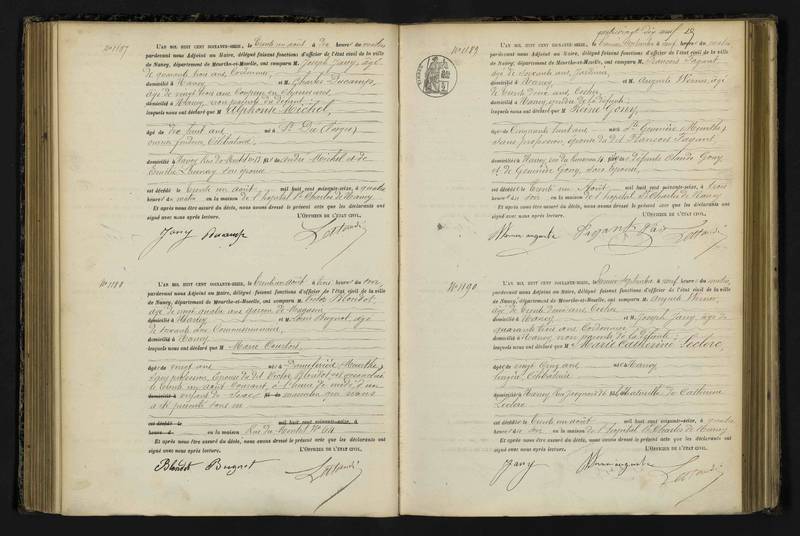 No 1187
L'AN MIL HUIT CENT SOIXANTE-SEIZE, le Trente un août à dix heures du matin
pardevant nous Adjoint au Maire, délégué faisant fonctions d'officier de l'état civil de la ville
de Nancy, département de Meurthe-et-Moselle, ont comparu M. Joseph Jany, âgé
de quarante trois ans Cordonnier,
domicilié à Nancy et M. Charles Ducamp,
âgé de vingt trois ans
domicilié à Nancy non parents du défunt
lesquels nous ont déclaré que M Alphonse Michel,
âgé de dix huit ans né à St Dié (Vosges)
Célibataire,
domicilié à Nancy fils de André Michel et de
son épouse
est décédé le trente un août mil huit cent soixante-seize, à quatre
heures du matin en la maison de l'hôpital St Charles de Nancy
Et après nous être assuré du décès, nous avons dressé le présent acte que les déclarants ont
signé avec nous après lecture. L'OFFICIER DE L'ÉTAT CIVIL,
Jany Ducamp
No 1188
L'AN MIL HUIT CENT SOIXANTE-SEIZE, le Trente un août à trois heures du soir,
pardevant nous Adjoint au Maire, délégué faisant fonctions d'officier de l'état civil de la ville
de Nancy, département de Meurthe-et-Moselle, ont comparu M. Victor Blondot,
âgé de vingt quatre ans garçon de Magasin
domicilié à Nancy et M. Louis Bugnot âgé
de soixante ans Commissionnaire,
domicilié à Nancy
lesquels nous ont déclaré que M Marie
âgée de vingt ans née à (Meurthe)
sans profession, épouse du dit Victor Blondot est accouchée
le trente un août courant, à l'heure de midi d'un
domicilié à enfant de sexe masculin que nous
a été présenté sans vie
est décédé le mil huit cent soixante-seize, à
heures d en la maison Rue du Montet No 64
Et après nous être assuré du décès, nous avons dressé le présent acte que les déclarants ont
signé avec nous après lecture. L'OFFICIER DE L'ÉTAT CIVIL,
Blondot Bugnot
quatrevingt dix neuf
No 1189
L'AN MIL HUIT CENT SOIXANTE-SEIZE, le premier Septembre à neuf heures du matin
pardevant nous Adjoint au Maire, délégué faisant fonctions d'officier de l'état civil de la ville
de Nancy, département de Meurthe-et-Moselle, ont comparu M. François Pagant
âgé de soixante ans,
domicilié à Nancy et M. Auguste Werner, âgé
de trente deux ans, Cocher,
domicilié à Nancy, gendre de la défunte
lesquels nous ont déclaré que M Reine Gony,
âgée de Cinquante huit ans née à Ste Geneviève (Meurthe)
sans profession, épouse du dit François Pagant,
domiciliée à Nancy fille de défunts Claude Gony
et de Geneviève Gony, son épouse,
est décédée le trente un Août mil huit cent soixante-seize, à trois
heures du soir en la maison de l'hôpital St Charles de Nancy
Et après nous être assuré du décès, nous avons dressé le présent acte que les déclarants ont
signé avec nous après lecture. L'OFFICIER DE L'ÉTAT CIVIL,
Werner auguste Pagant
No 1190
L'AN MIL HUIT CENT SOIXANTE-SEIZE, le premier Septembre à neuf heures du matin,
pardevant nous Adjoint au Maire, délégué faisant fonctions d'officier de l'état civil de la ville
de Nancy, département de Meurthe-et-Moselle, ont comparu M. Auguste Werner,
âgé de trente deux ans Cocher
domicilié à Nancy et M. Joseph Jany, âgé de
quarante trois ans Cordonnier,
domicilié à Nancy, non parents de la défunte,
lesquels nous ont déclaré que M Marie Catherine Leclerc,
âgée de vingt cinq ans née à Nancy
lingère, Célibataire
domiciliée à Nancy fille naturelle de Catherine
Leclerc
est décédée le trente un août mil huit cent soixante-seize, à quatre
heures du soir en la maison de l'hôpital St Charles de Nancy
Et après nous être assuré du décès, nous avons dressé le présent acte que les déclarants ont
signé avec nous après lecture. L'OFFICIER DE L'ÉTAT CIVIL,
Jany Werner auguste